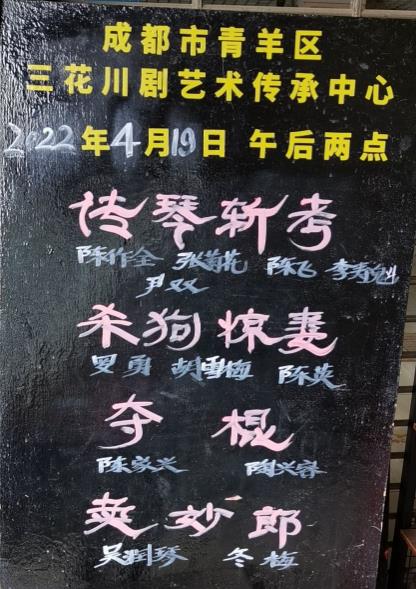 成都市青羊区
三花川剧艺术传承中心
2022年4月19日 午后两点
传琴斩考
陈作全 张菊花 陈飞 李寿魁
尹双
杀狗惊妻
罗勇 胡雪梅 陈英
夺棍
陈家兴 陶兴容
卖妙郎
吴润琴 冬梅